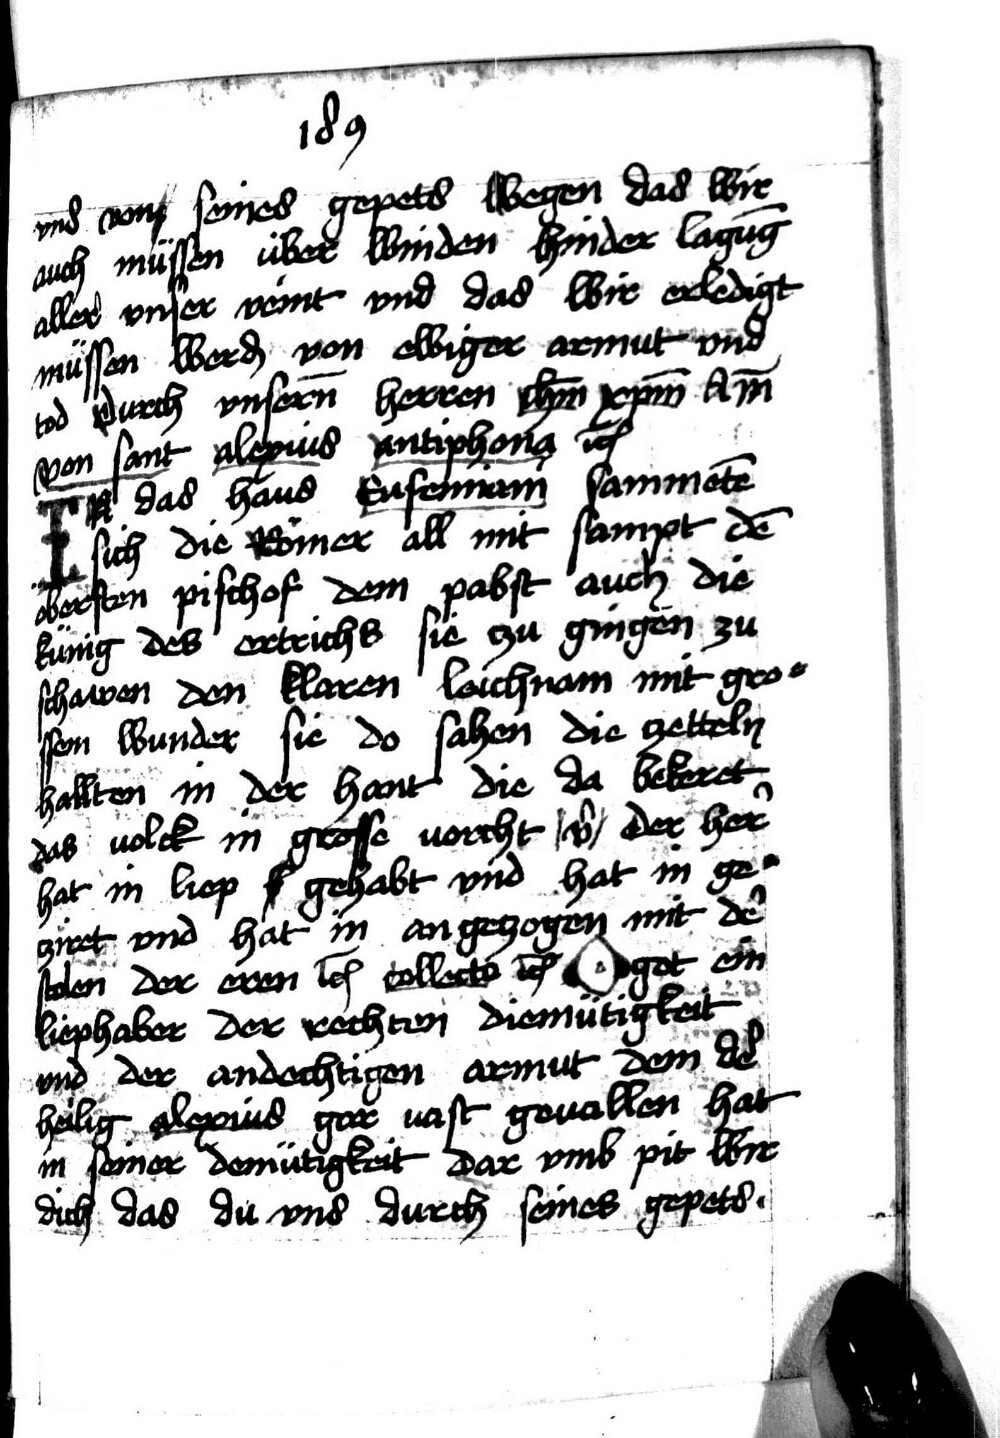 189
vnd von seines gepets wegen das wir
auch müssen über winden hinder lagūg
aller vnser veint vnd das wir erledigt
müssen werdn von ewiger armut vnd
tod durch vnsern̄ herren ihm̄ xpm̄ Am̄
von sant alexius antiphona
IN das haus Eufemiani sammetē
sich die Römer all mit sampt dē
obersten pischof dem pabst auch die
künig des ertrichs sie zu gingen zu
schawen den klaren leichnam mit gro
ssem wunder sie do sahen die zetteln
hallten in der hant die da bekeret
das volck in grosse vorcht v̄ der her
hat in liep gehabt vnd hat in ge
ziret vnd hat in angezogen mit de
stolen der eren collecta O got ein
liephaber der rechten diemütigkeit
vnd der andechtigen armut dem de
heilig alexius gar vast gevallen hat
in seiner demütigkeit dar vmb pit wir
dich das du vns durch seines gepets